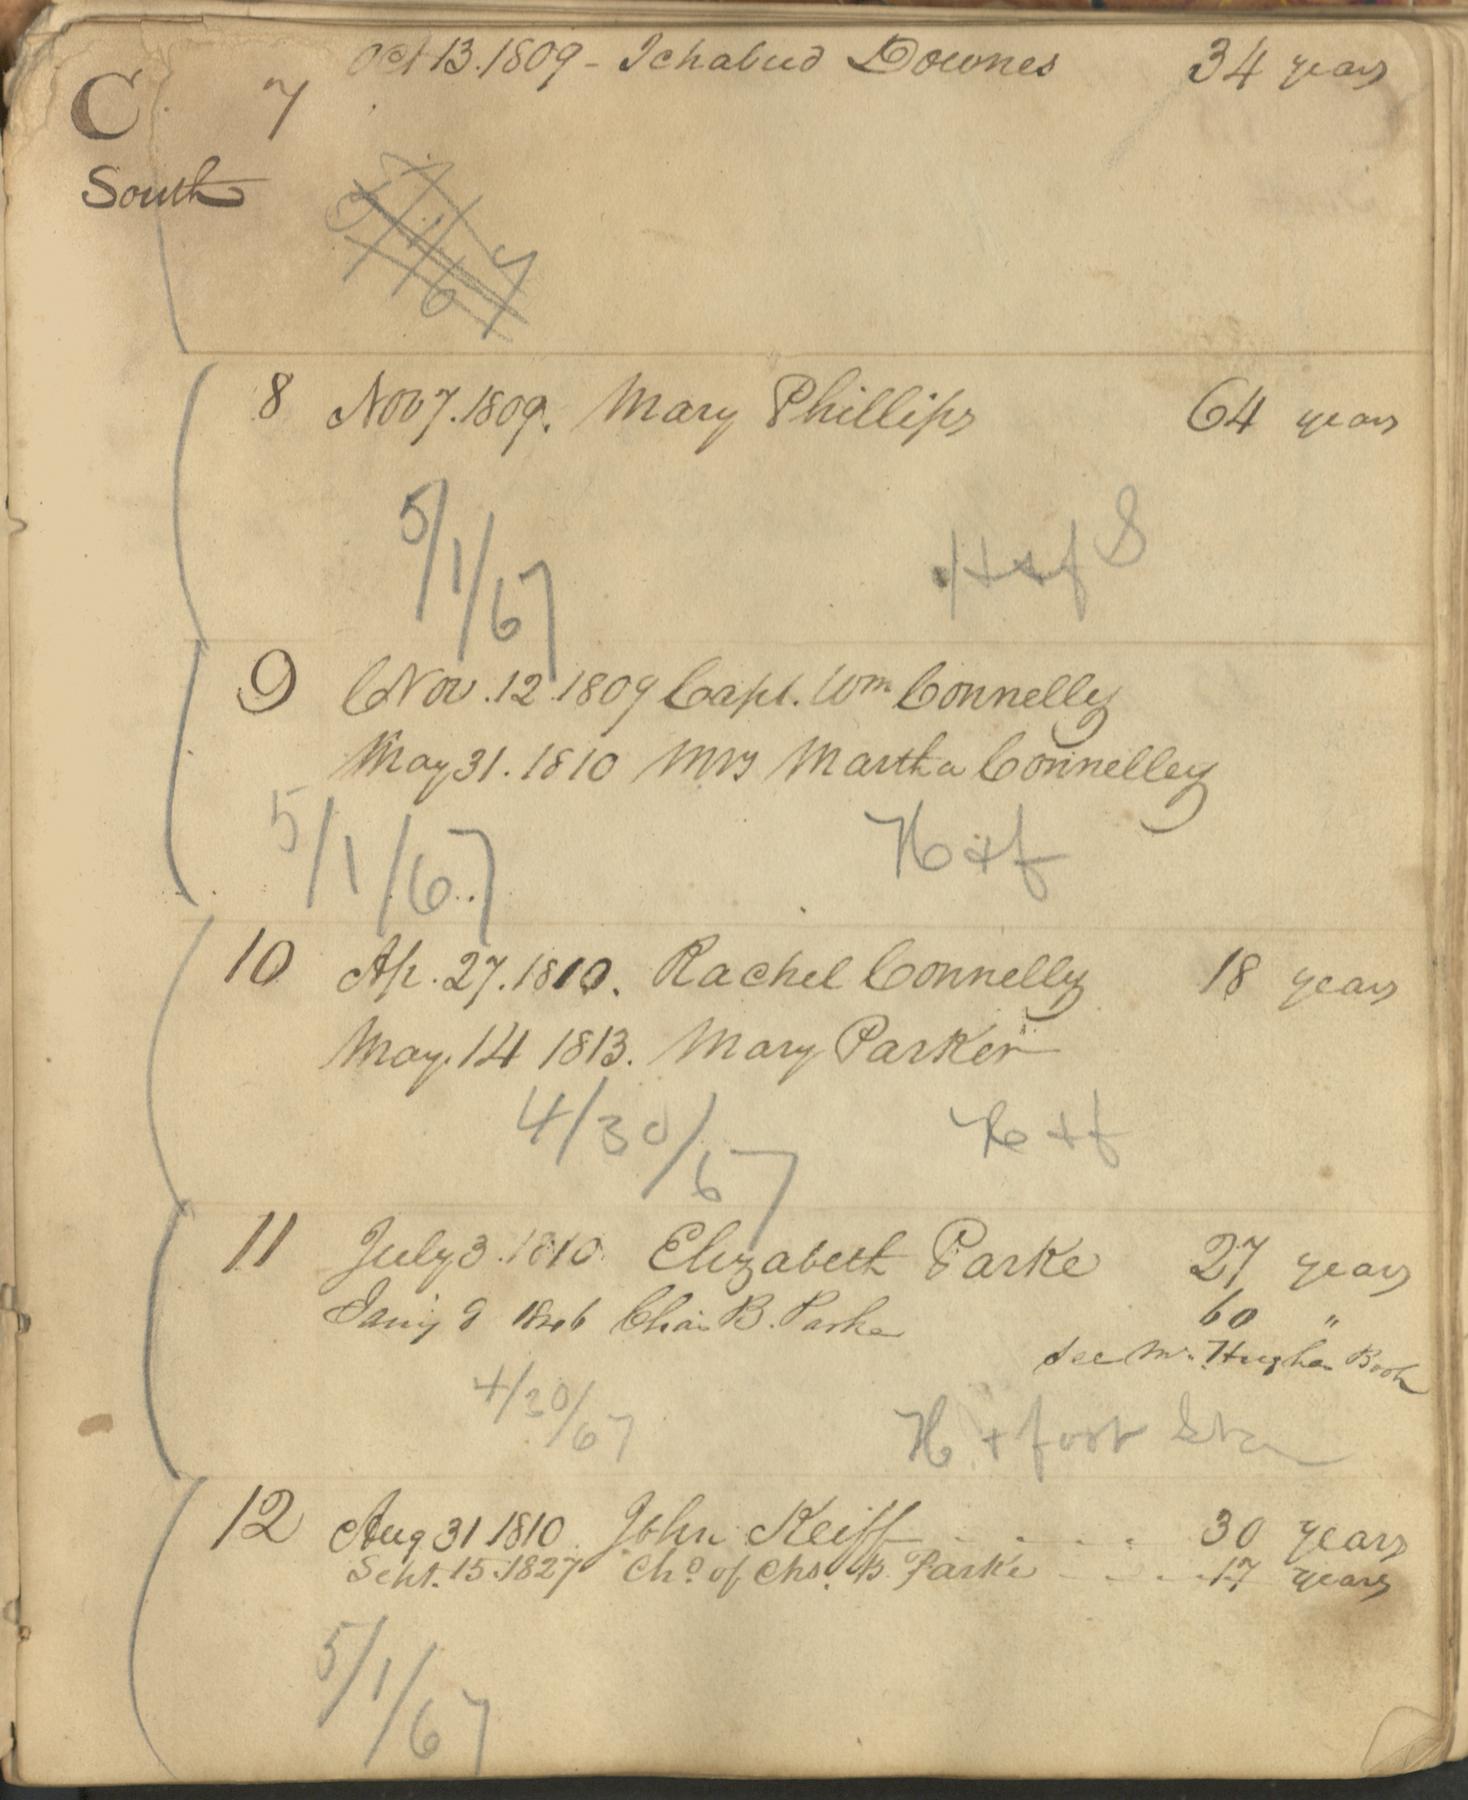 Oct 13. 1809 - Ichabud Downes 34 years
C 7
South
8 Nov 7. 1809. Mary Phillips 64 years
5/1/67
9 Nov. 12 1809 Capt. Wm Connelly
May 31. 1810 Mrs Martha Connelley
5/1/67 H & f
10 Ap. 27. 1810. Rachel Connelly 18 years
May. 14 1813. Mary Parker
4/30/67 H & f
11 July 3. 1810. Elizabeth Parke 27 years
Jany 9 1846 Chas B. Parke 60 "
See Mr. Hughes Book
4/30/67 H + foot
12 Aug 31 1810 John Keiff 30 years
Sept. 15. 1827 Cho. of Chs. B. Parke 17 years
5/1/67